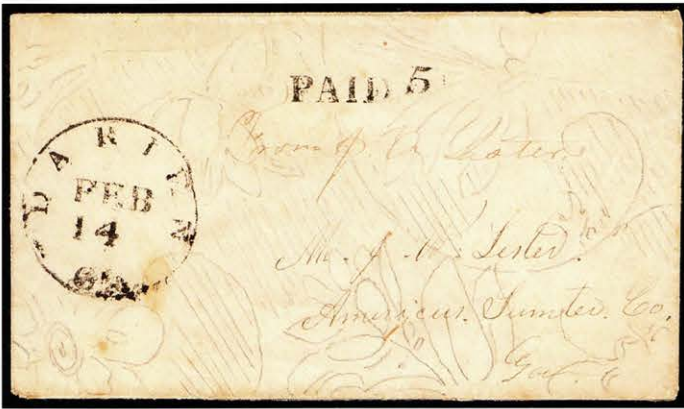 PAID 5
DARIEN
FEB
14
Ga
From J.
Mr. J. W. Lester.
Americus. Sumter. Co.
Ga.